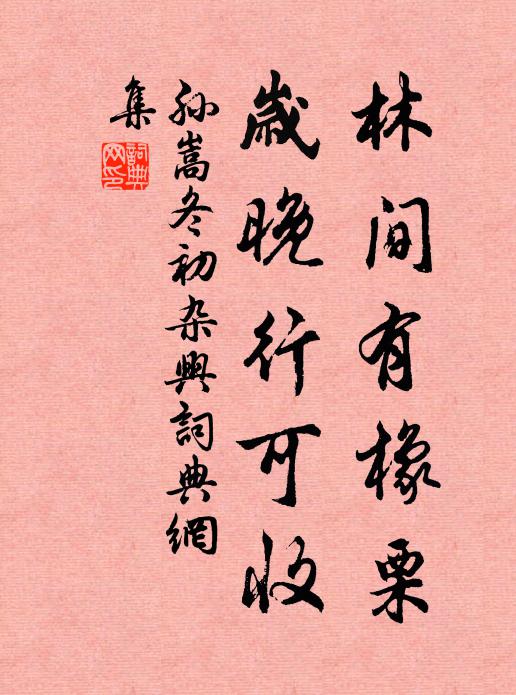 林間有橡栗
歲晚行可收
孙嵩冬初杂興詞典網
集
詞典
网印